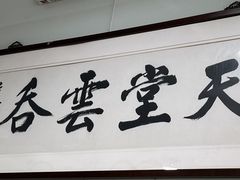 天堂雲吞